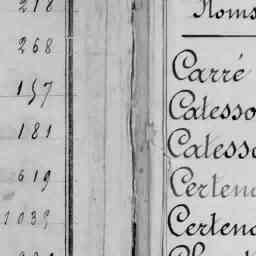 218
Noms
268
Carré
157
Catesso
181
Catesso
619
Certeno
1039
Certeno